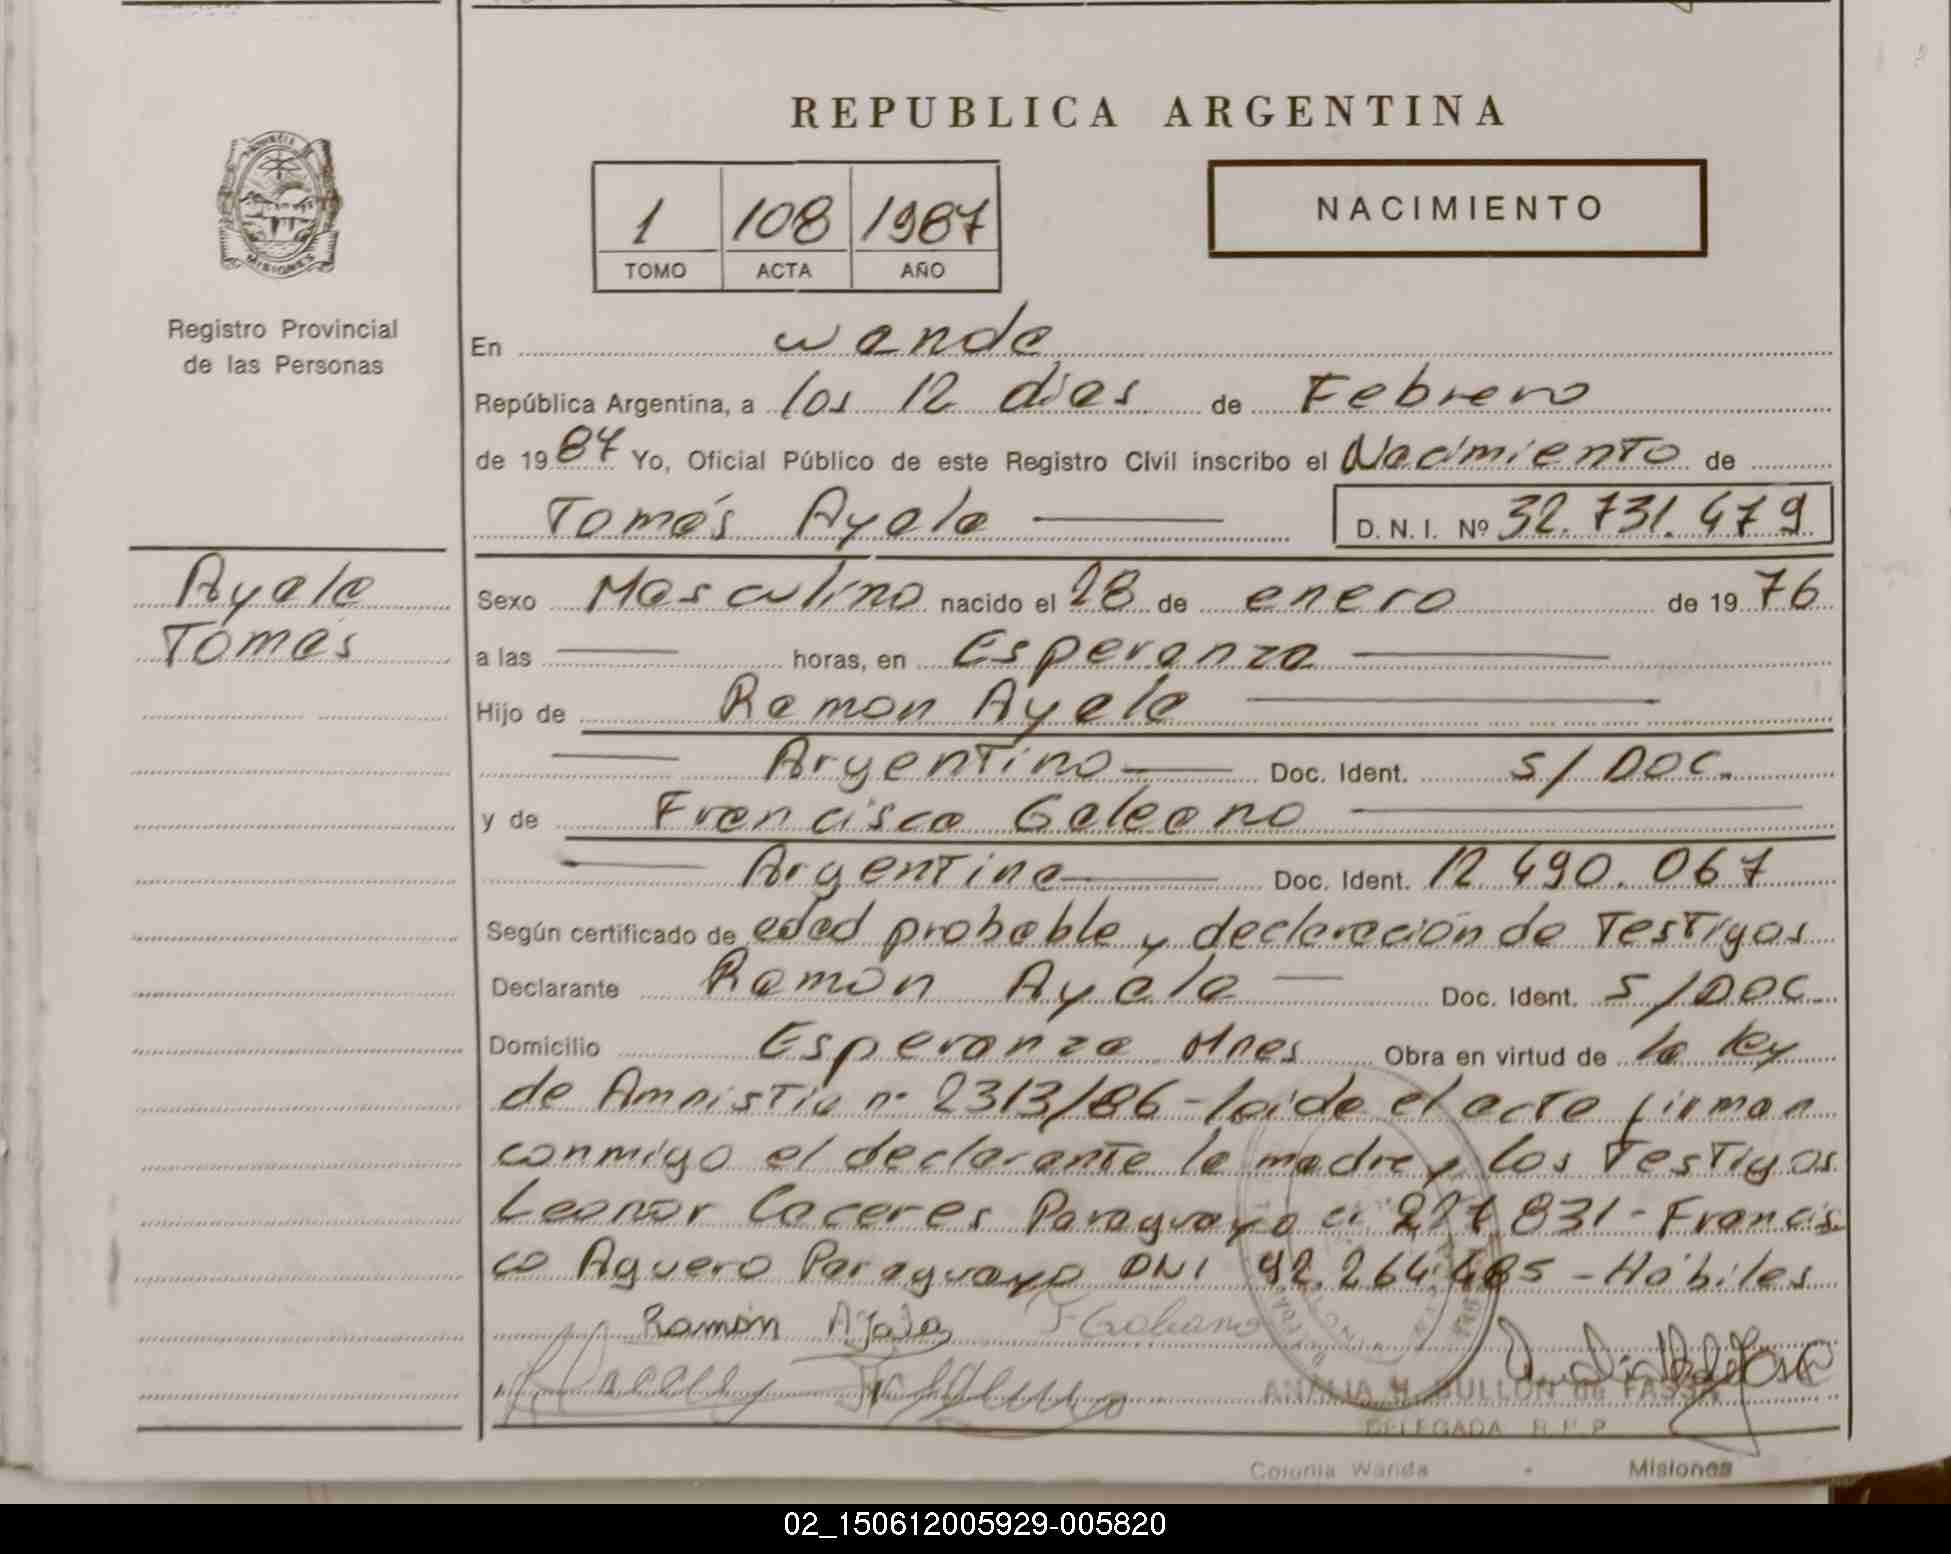 REPUBLICA ARGENTINA
PROVINCIA DE
MISIONES
Registro Provincial
de las Personas
1 108 1987
TOMO ACTA AÑO
NACIMIENTO
En Wanda
República Argentina, a los 12 dias de Febrero
de 1987 Yo, Oficial Público de este Registro Civil inscribo el Nacimiento de
Tomás Ayala
D. N. I. Nº 32.731.479
Ayala
Tomás
Sexo Masculino nacido el 28 de enero de 1976
a las horas, en Esperanza
Hijo de Ramon Ayala
Argentino Doc. Ident. s/Doc.
y de Francisca Galeano
Argentina Doc. Ident. 12 490.067
Según certificado de edad probable y declaración de Testigos
Declarante Ramón Ayala Doc. Ident. S/DOC
Domicilio Esperanza Mnes Obra en virtud de la ley
de Amnistia nº 2313/86 - leida el acta firman
conmigo el declarante la madre y los Testigos
Leonor Caceres Paraguaya ci 831 - Francis
co Aguero Paraguayo DNI 92.264.485 - Hábiles
Ramón Ajala
ANALIA H. BULLON de FASSA
DELEGADA R.P.P
Colonia Wanda - Misiones
02_150612005929-005820